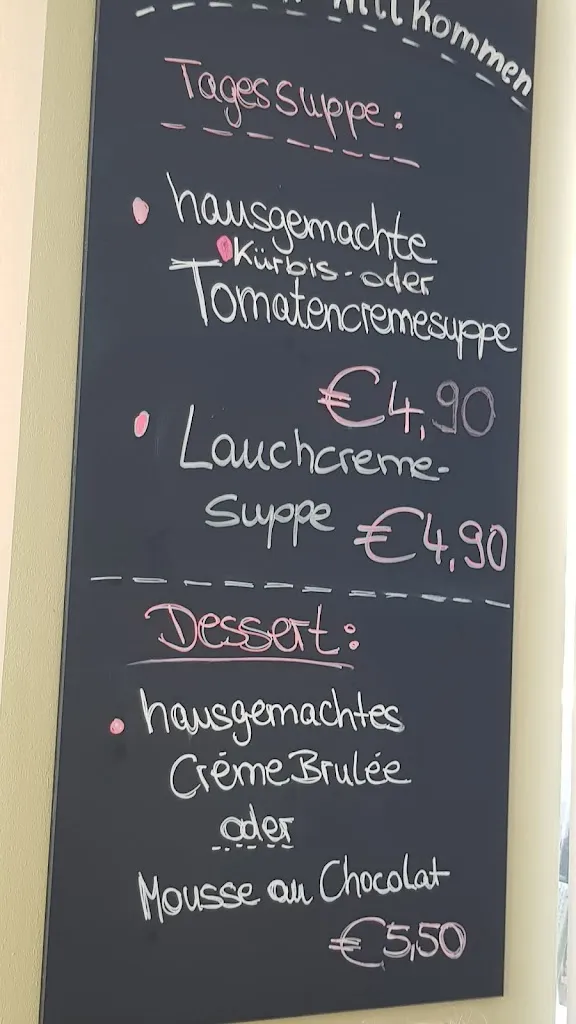 Willkommen
Tagessuppe:
hausgemachte
Kürbis- oder
Tomatencremesuppe
€4,90
Lauchcreme-
suppe €4,90
Dessert:
hausgemachtes
Créme Brulée
oder
Mousse au Chocolat
€5,50